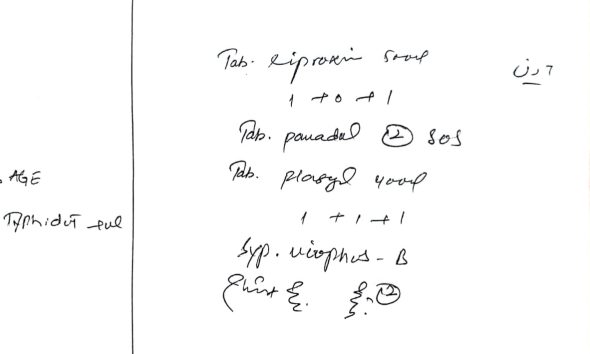 AGE
Typhidot +ve
Tab. Ciproxin 500mg
۲ دن
1 + 0 + 1
Tab. panadol ② SOS
Tab. Flagyl 400mg
1 + 1 + 1
Syp. - B
②